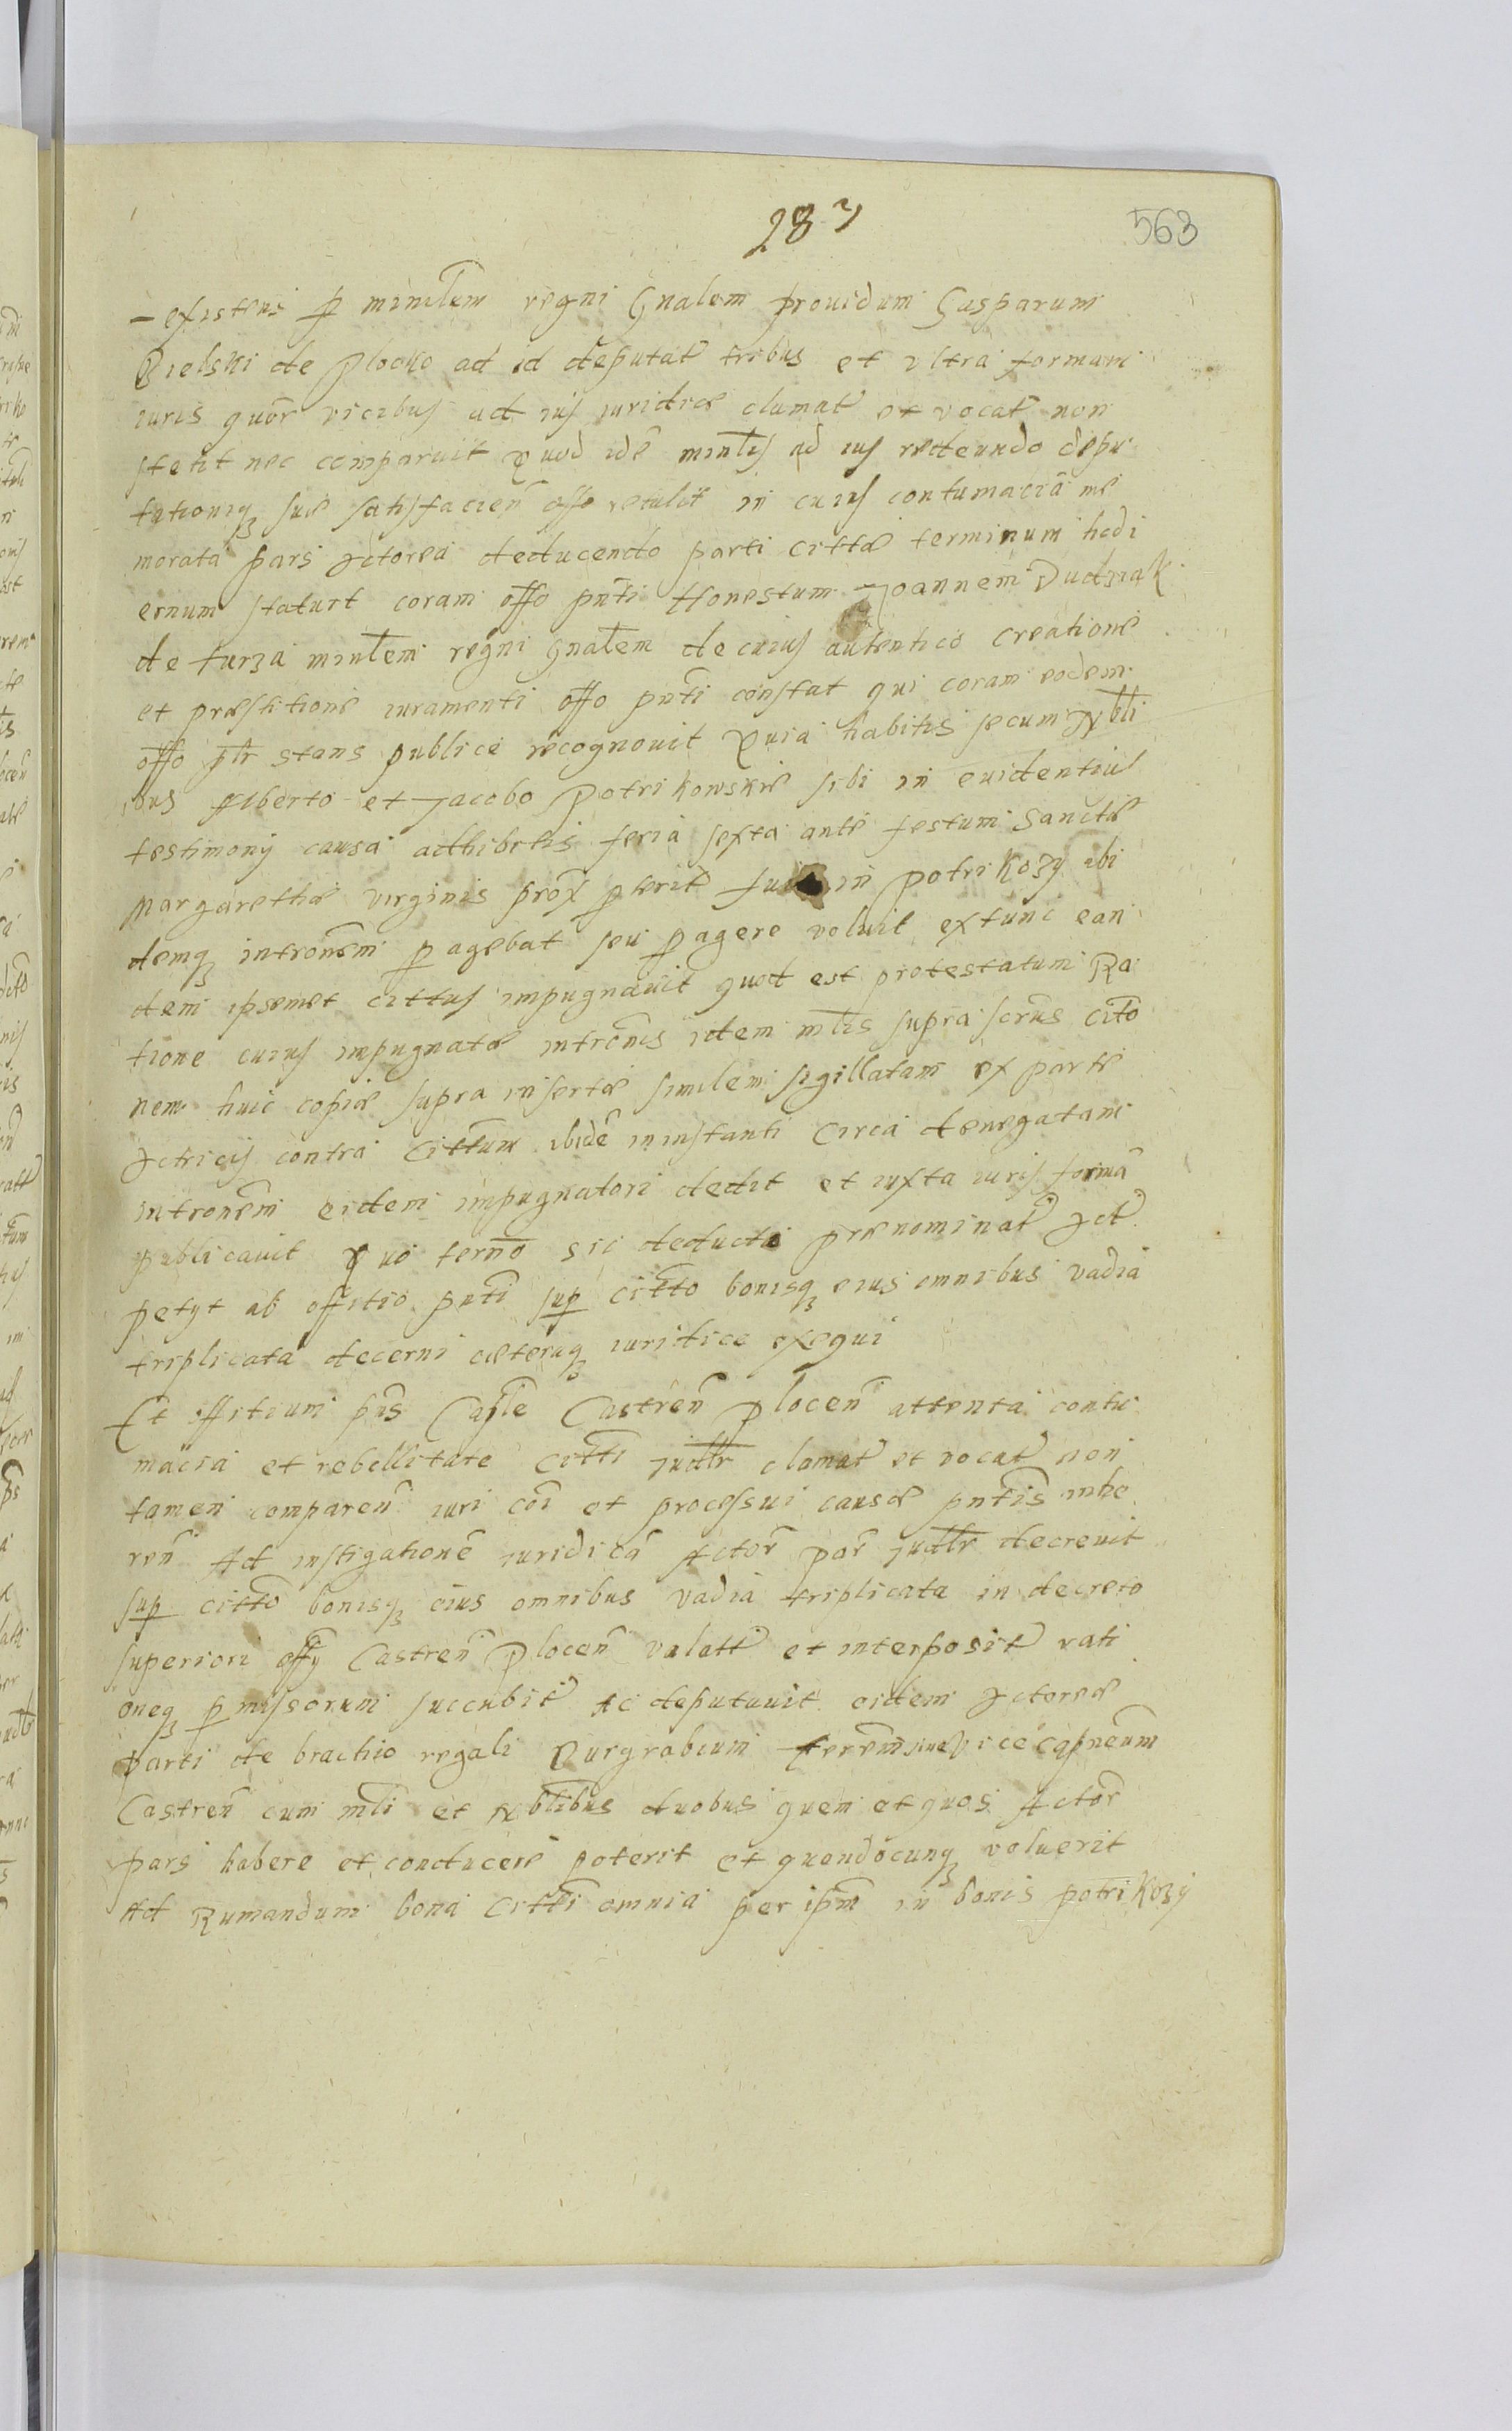 283
563
– existens p minrlem regni Gnalem prouidum Gasparum
Bielski de Plocko ad id deputat tribus et vltra formam
iuris quor vicibus ad ius iuridice clamat et vocat non
stetit nec comparuit Quod idē minlis ad ius redeundo depu
tationiq suæ satisfacien offo retulit in cuius contumaciā me
morata pars Actorea deducendo parti cittæ terminum hodi
ernum statuit coram offo pnti Honestum Joannem Dudziak
de turza minlem regni Gnalem de cuius autentico creatione
et præstitione iuramenti offo pnti constat qui coram eodem
offo pltr stans publice recognouit Quia habitis secum Nbli
bus Alberto et Jacobo Potrikowskie sibi in euidentius
testimony causa adhibitis feria sexta ante festum Sanctæ
Margarethæ virginis prox pterit fuit in potrikozy ibi
demq intronem pagebat seu pagere voluit extunc ean
dem ipsemet cittus impugnauit quod est protestatum Ra
tione cuius impugnatæ intronis idem mlis supra scrus cito
nem huic copiæ supra insertæ similem sigillatam ex parte
Actricis contra Cittum ibidē ininstanti circa denegatam
intronem eidem impugnatori dedit et iuxta iuris formā
publicauit Quo termo sic deducto prænominat Act
petyt ab offitio pnti sup citto bonisq eius omnibus vadia
triplicata decerni cæteraq iuridice exequi
Et offitium pns Caple Castren Plocen attenta contu
macia et rebellitate citti judlr clamat et vocat non
tamen comparen iuri coi et processui causæ pntis inhe
ren Ad instigationē iuridicā Actor par judlr decreuit
sup citto bonisq eius omnibus vadia triplicata in decreto
superiori offy Castren Plocen valatt et interposit rati
oneq pmissorum succubit Ac deputauit eidem Actoreæ
parti de brachio regali Burgrabium terrem siue vice capneum
Castren cum mli et Nblibus duobus quem et quos Actor
pars habere et conducere poterit et quandocunq voluerit
Ad Rumandum bona citti omnia per ipm in bonis potrikozy